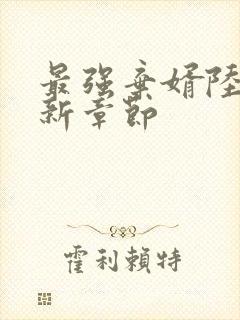 最强弃婿陆
新章节
霍利賴特